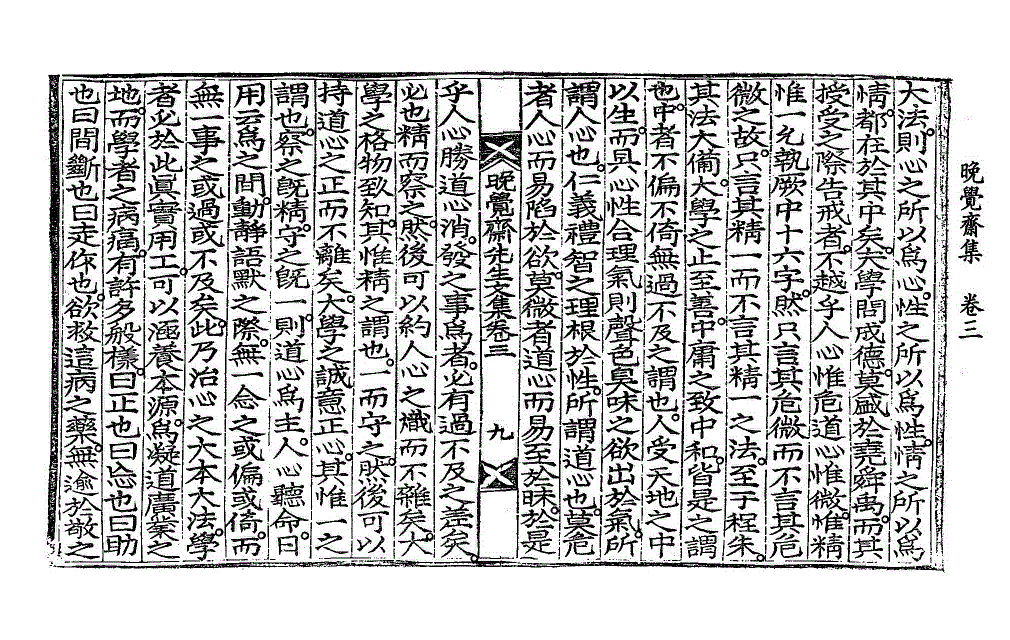 晚覺齋集　卷三
大法則心之所以爲心性之所以爲性情之所以爲
情都在於其中矣大學問成德莫盛於堯舜禹而其
授受之際告戒者不越乎人心惟危道心惟微惟精
惟一允執厥中十六字然只言其危微而不言其危
微之故只言其精一而不言其精一之法至于程朱
其法大備大學之止至善中庸之致中和皆是之謂
也中者不偏不倚無過不及之謂也人受天地之中
以生而具心性合理氣則聲色臭味之欲出於氣所
謂人心也仁義禮智之理根於性所謂道心也莫危
者人心而易陷於欲莫微者道心而易至於昧於是
晚覺齋先生文集卷三　九
乎人心勝道心消發之事爲者必有過不及之差矣
必也精而察之然後可以約人心之熾而不雜矣大
學之格物致知其惟精之謂也一而守之然後可以
持道心之正而不離矣大學之誠意正心其惟一之
謂也察之旣精守之旣一則道心爲主人心聽命日
用云爲之間動靜語默之際無一念之或偏或倚而
無一事之或過或不及矣此乃治心之大本大法學
者必於此眞實用工可以涵養本源爲凝道廣業之
地而學者之病痛有許多般樣曰正也曰忘也曰助
也曰間斷也曰走作也欲救這病之藥無逾於敬之